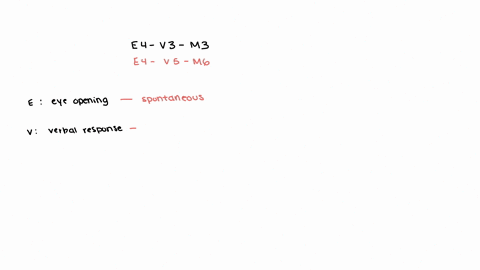 E4 - V3 - M3
E4 - V5 - M6
E : eye opening — spontaneous
V : verbal response —